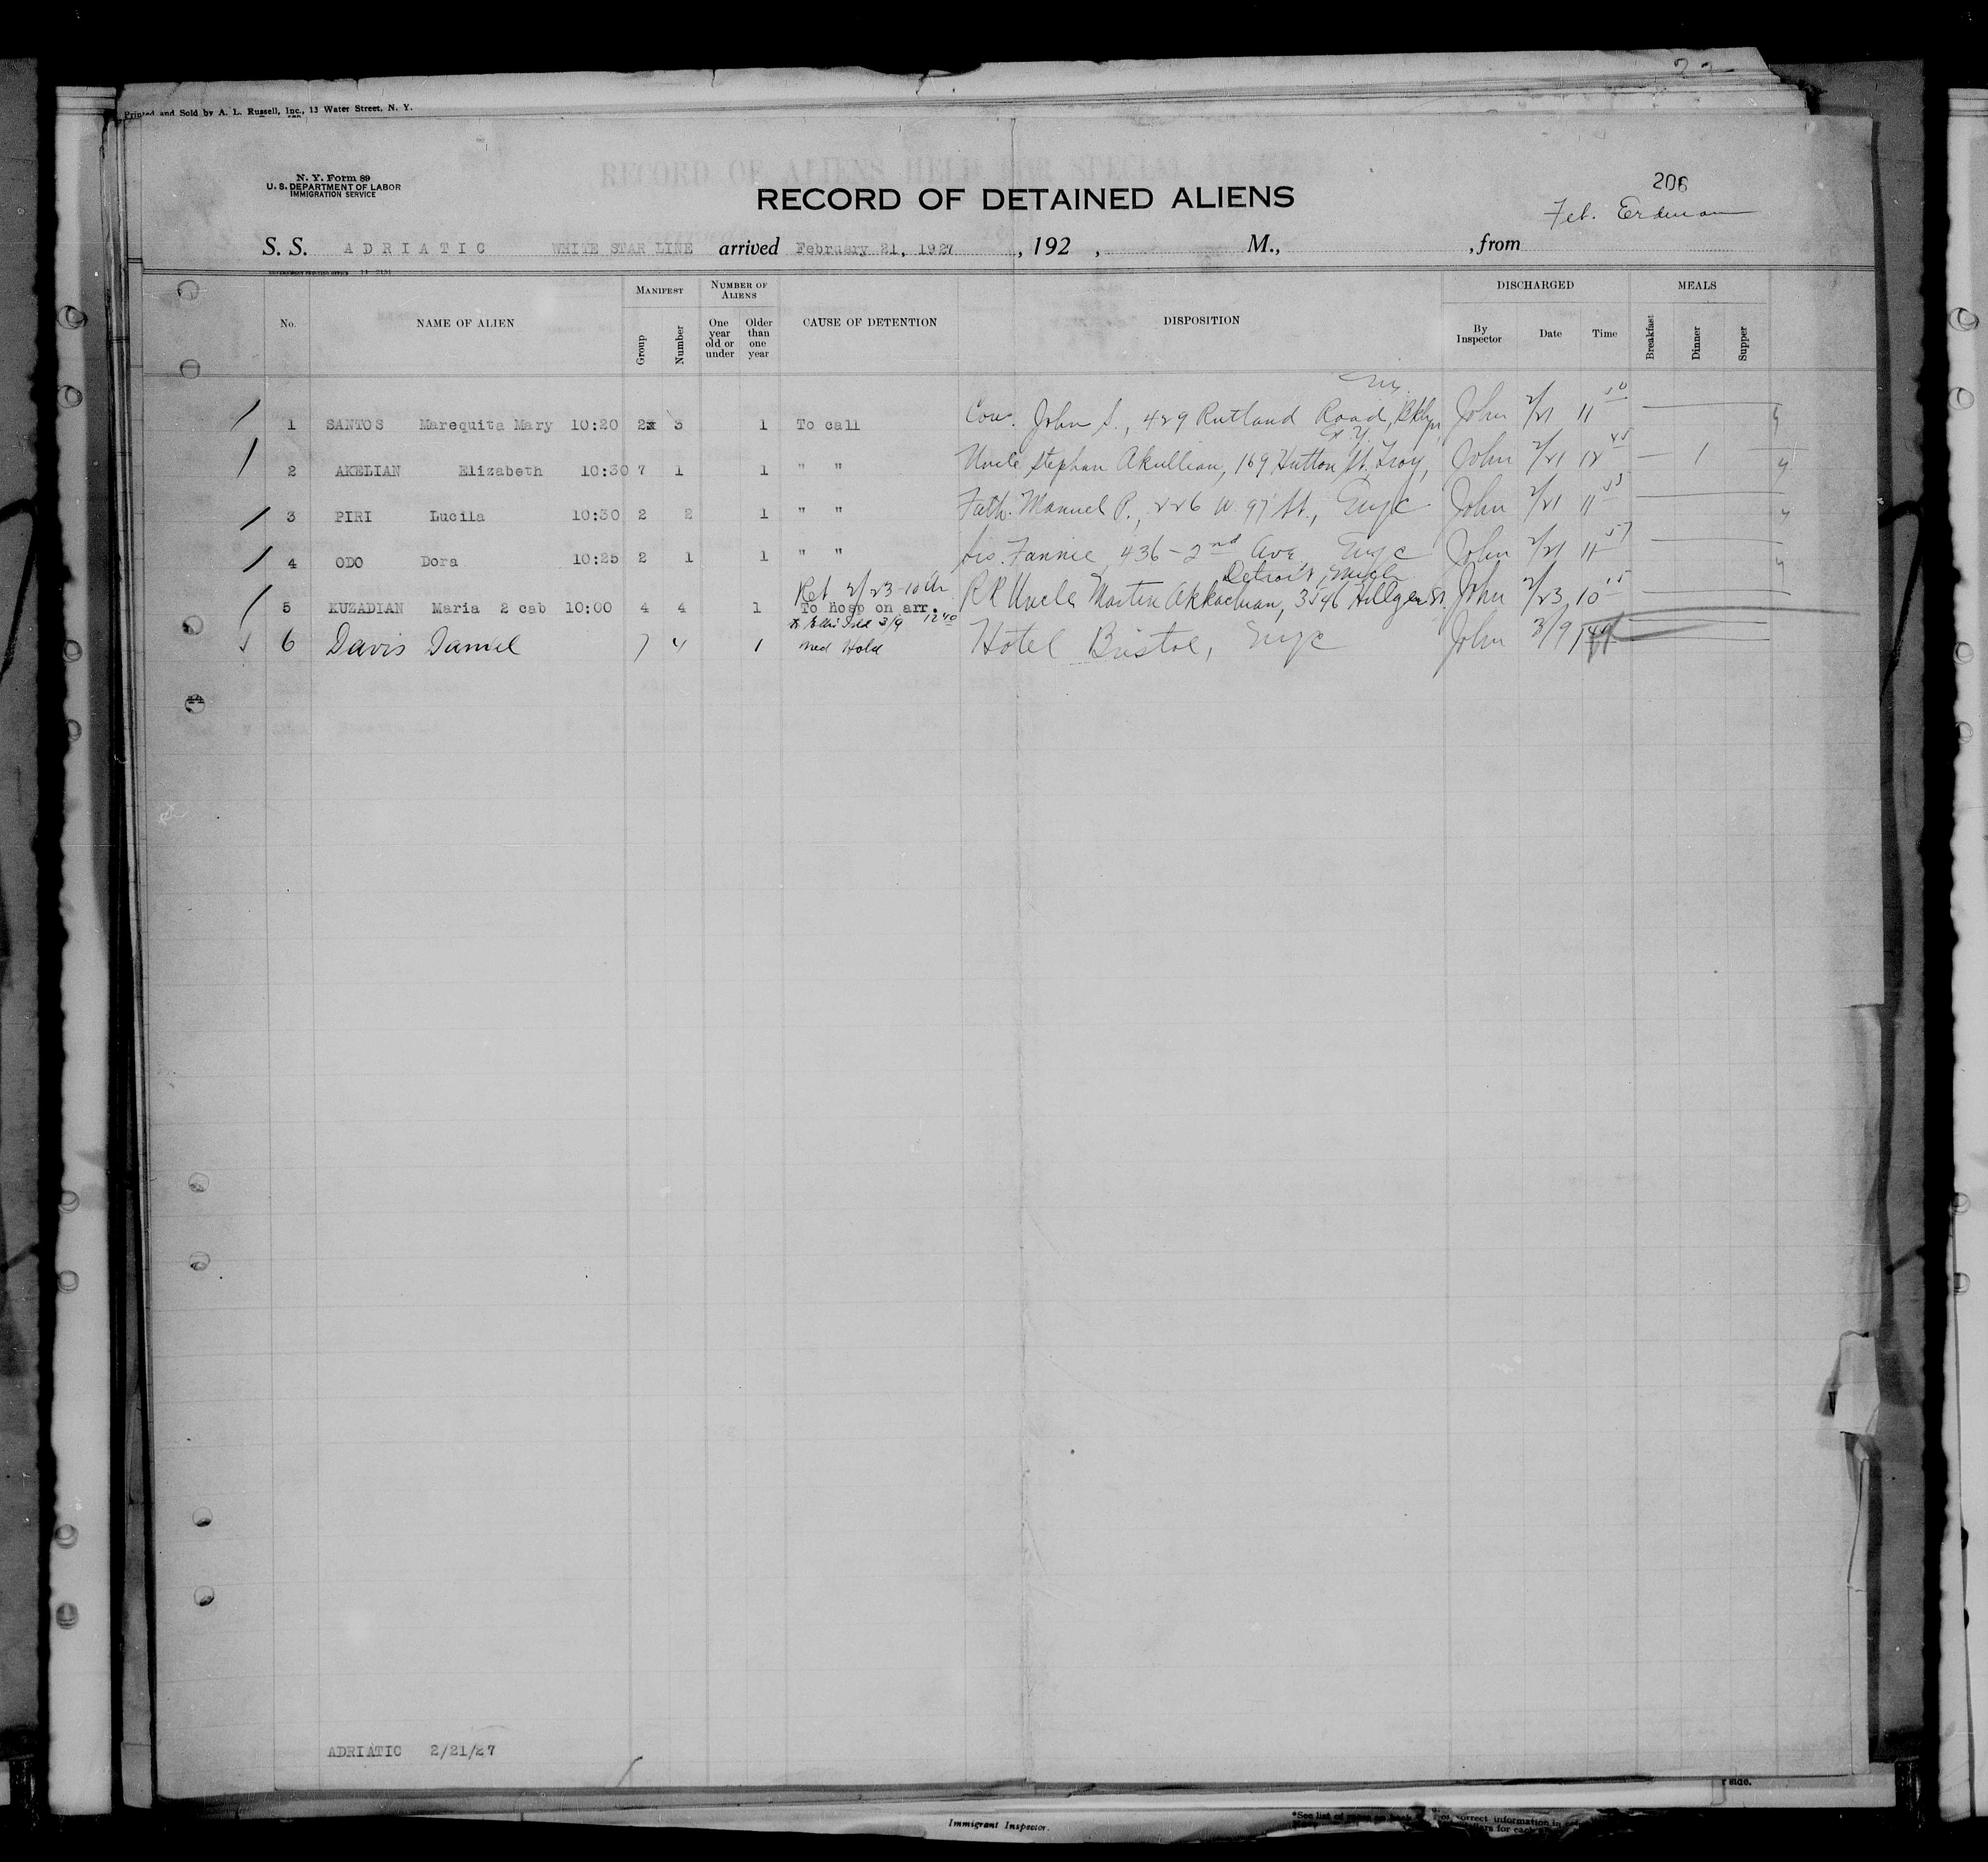 Printed and Sold by A. L. Russell, Inc., 13 Water Street, N. Y.
N. Y. Form 89
U. S. DEPARTMENT OF LABOR
IMMIGRATION SERVICE
RECORD OF ALIENS HELD FOR SPECIAL
RECORD OF DETAINED ALIENS
206
Feb. Erdman
S. S. ADRIATIC WHITE STAR LINE arrived February 21, 1927, 192 , M., , from
No. NAME OF ALIEN MANIFEST Group Number NUMBER OF ALIENS One year old or under Older than one year CAUSE OF DETENTION DISPOSITION DISCHARGED By Inspector Date Time MEALS Breakfast Dinner Supper
1 SANTOS Marequita Mary 10:20 2x 3 1 To call Cou. John S., 429 Rutland Road, Bklyn, John 2/21 11 50
N.Y.
2 AKELIAN Elizabeth 10:30 7 1 1 " " Uncle Stephan Akullian, 169 Hutton St. Troy, John 2/21 12 45 1
3 PIRI Lucila 10:30 2 2 1 " " Fath. Manuel P., 226 W. 97 St., NYC John 2/21 11 55
4 ODO Dora 10:25 2 1 1 " " Sis. Fannie, 436 - 2nd Ave NYC John 2/21 11 57
Ret 2/23 - 10 Detroit, Mich
5 KUZADIAN Maria 2 cab 10:00 4 4 1 To Hosp on arr. RR Uncle Martin 3546 John 2/23 10 15
to Ellis Isld 3/9 12 40
6 Davis Daniel 7 4 1 Med Hold Hotel Bristol, NYC John 3/9
ADRIATIC 2/21/27
r side.
Immigrant Inspector.
*See list of races on back